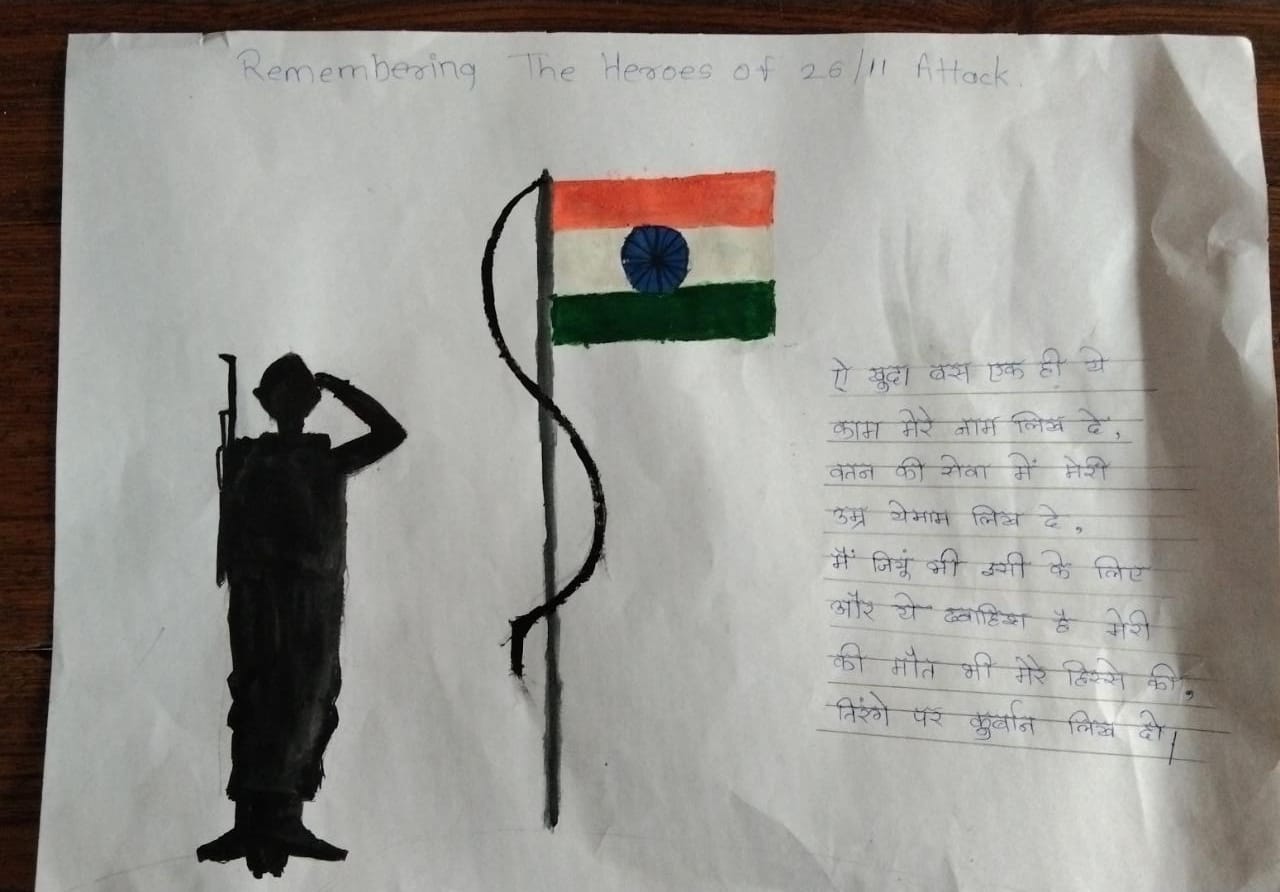 Remembering The Heroes of 26/11 Attack.
ऐ खुदा बस एक ही ये
काम मेरे नाम लिख दे,
वतन की सेवा में मेरी
उम्र येमाम लिख दे,
मैं जियूं भी उसी के लिए
और ये ख्वाहिश है मेरी
की मौत भी मेरे हिस्से की,
तिरंगे पर कुर्बान लिख दो।